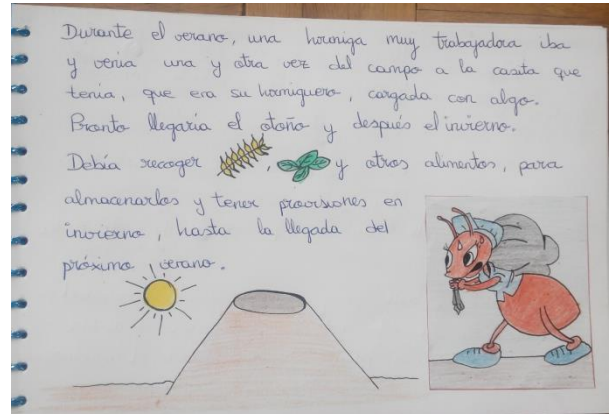 Durante el verano, una hormiga muy trabajadora iba
y venía una y otra vez del campo a la casita que
tenía, que era su hormiguero, cargada con algo.
Pronto llegaría el otoño y después el invierno.
Debía recoger , y otros alimentos, para
almacenarlos y tener provisiones en
invierno, hasta la llegada del
próximo verano.